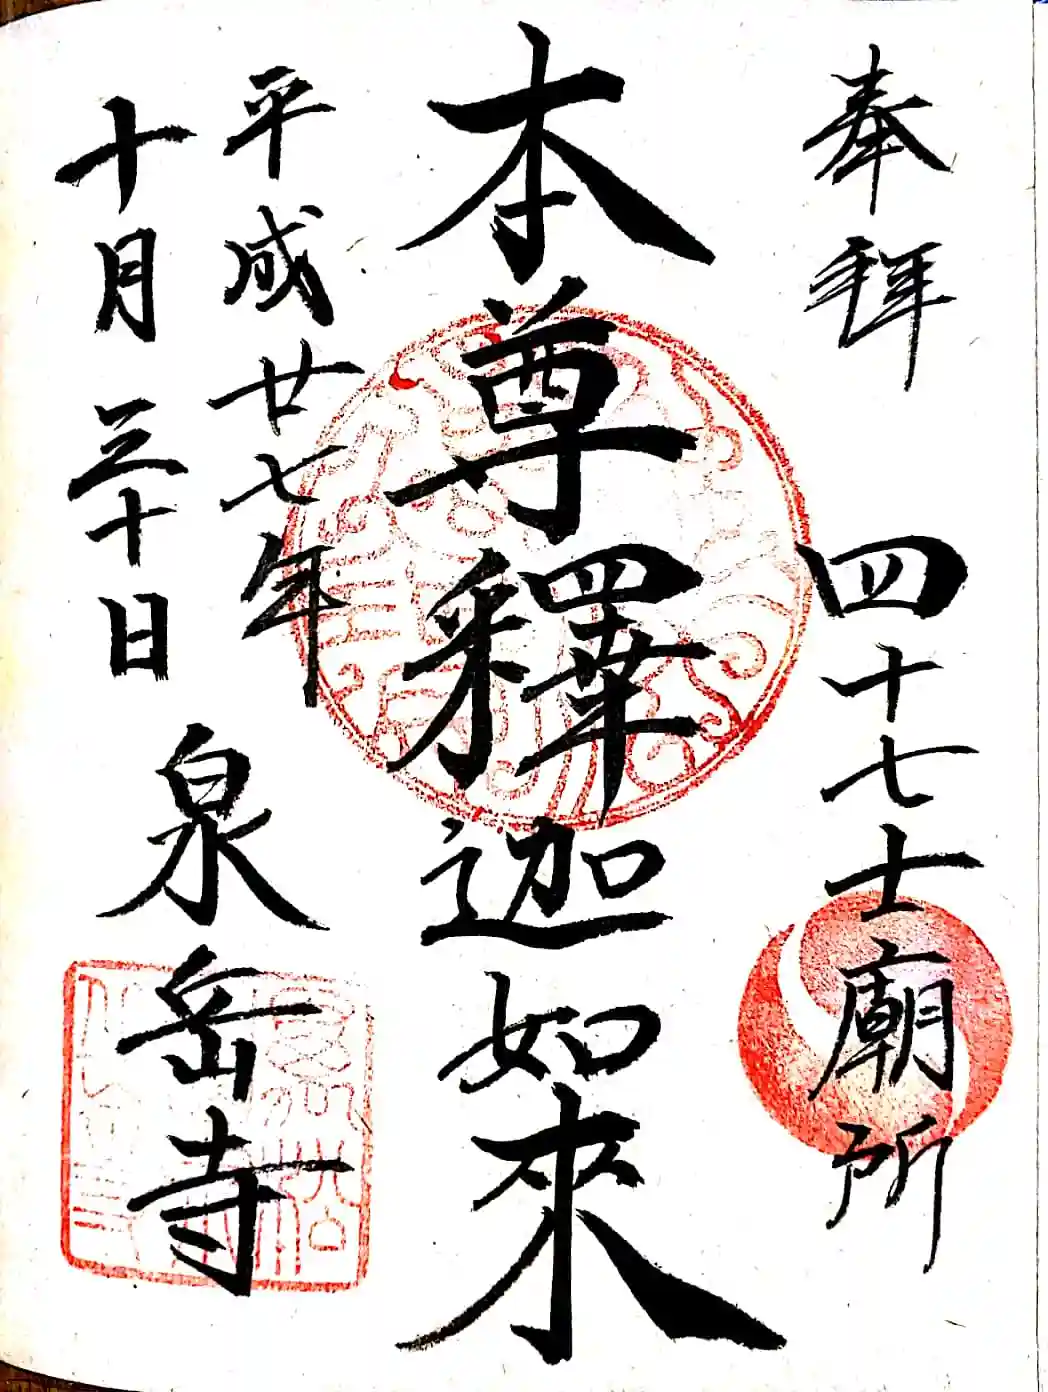 奉拜
四十七士廟所
本尊釋迦如來
平成廿七年
十月三十日
泉岳寺